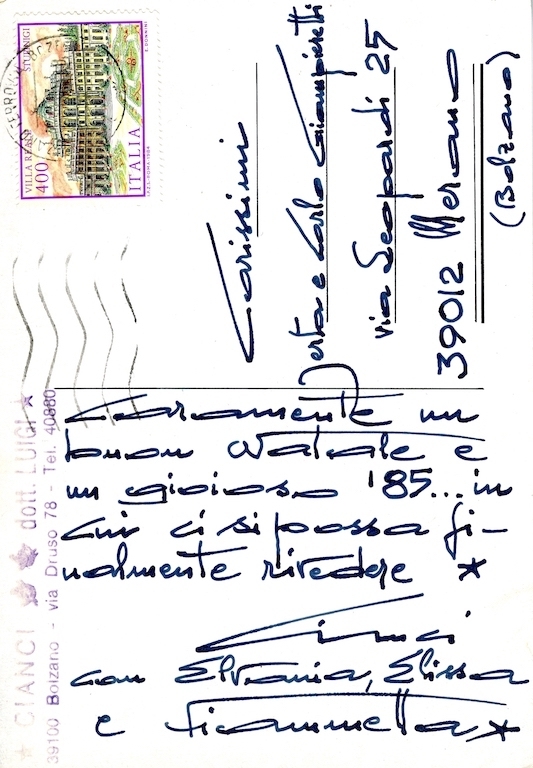 VILLA REALE STUPINIGI
400
ITALIA
E. DONNINI
I.P.Z.S. - ROMA - 1984
Carissimi
e Carlo Giampietretti
via Leopardi 25
39012 Merano
(Bolzano)
Caramente un
buon Natale e
un gioioso '85... in
cui ci si possa fi-
nalmente rivedere *
con Silvania, Elissa
e Fiammetta *
* CIANCI dott. LUIGI *
39100 Bolzano - via Druso 78 - Tel. 40860